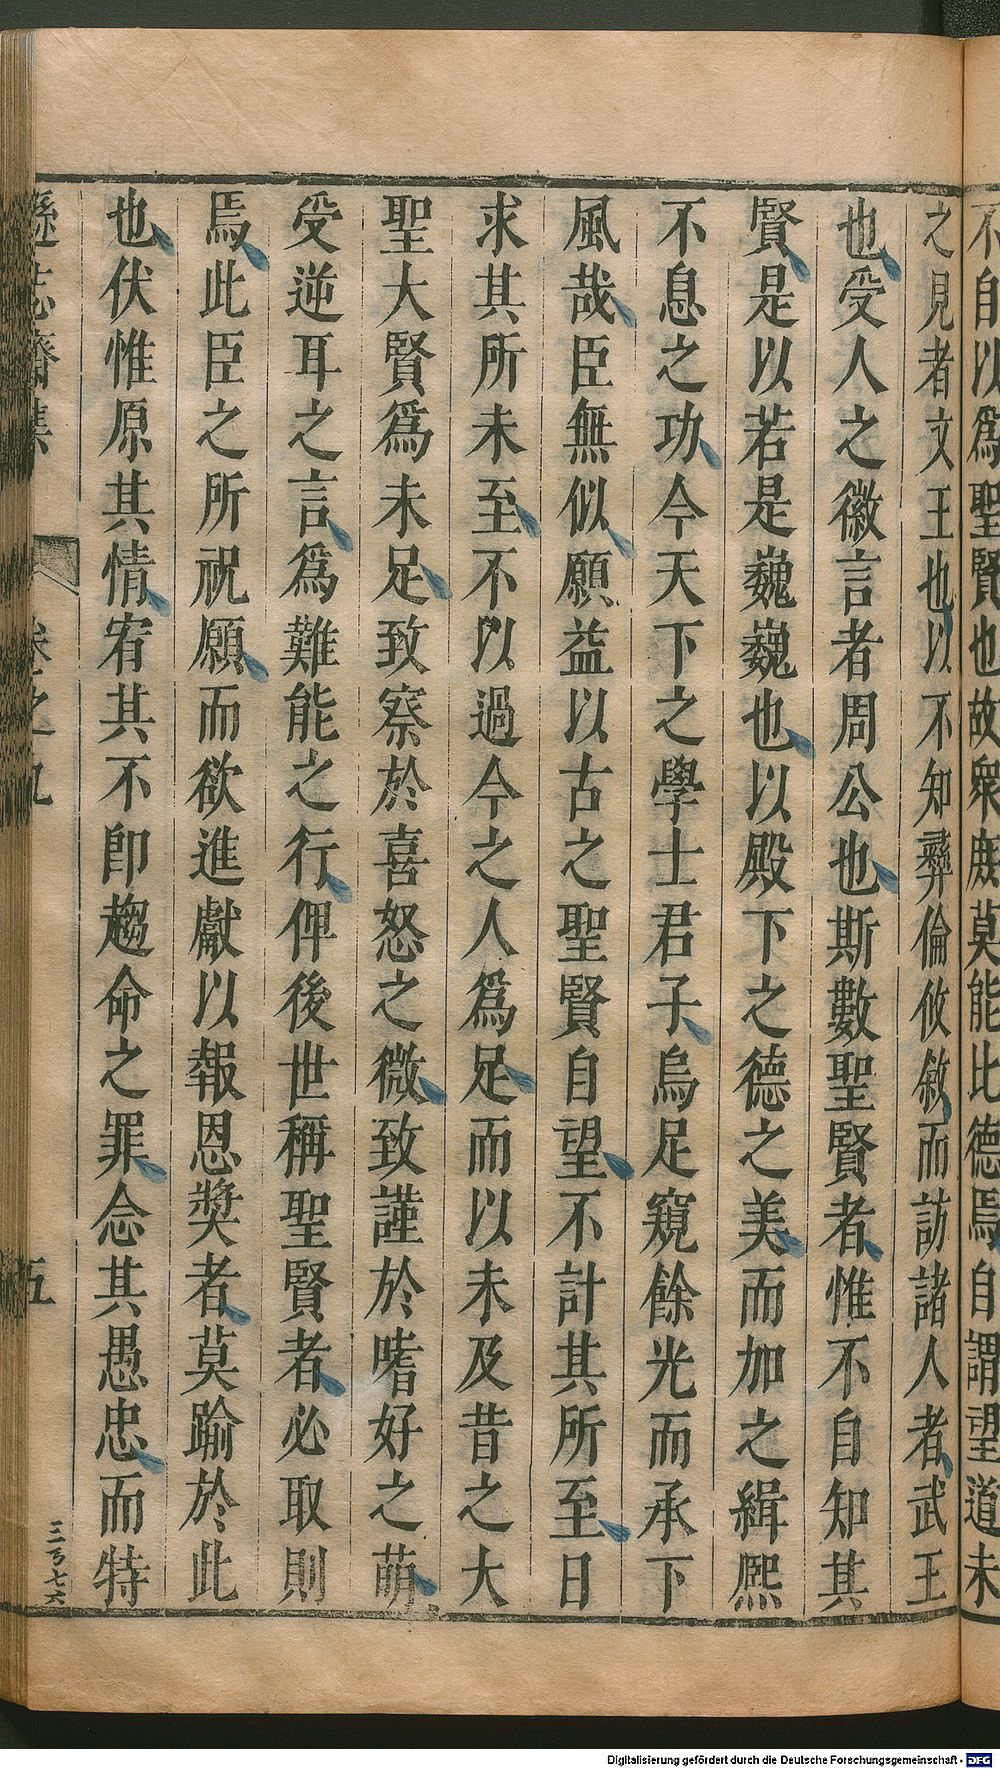 不自以爲聖賢也故衆庶莫能比德焉自謂望道未
之見者文王也以不知彝倫攸敘而訪諸人者武王
也受人之徽言者周公也斯數聖賢者惟不自知其
賢是以若是巍巍也以殿下之德之美而加之緝熈
不息之功今天下之學士君子烏足窺餘光而承下
風哉臣無似願益以古之聖賢自望不計其所至日
求其所未至不以過今之人爲足而以未及昔之大
聖大賢爲未足致察於喜怒之微致謹於嗜好之萌
受逆耳之言爲難能之行俾後世稱聖賢者必取則
焉此臣之所祝願而欲進獻以報恩奬者莫踰於此
也伏惟原其情宥其不卽趨命之罪念其愚忠而特
遜志齋集 卷之九 五
三百七六
Digitalisierung gefördert durch die Deutsche Forschungsgemeinschaft - DFG